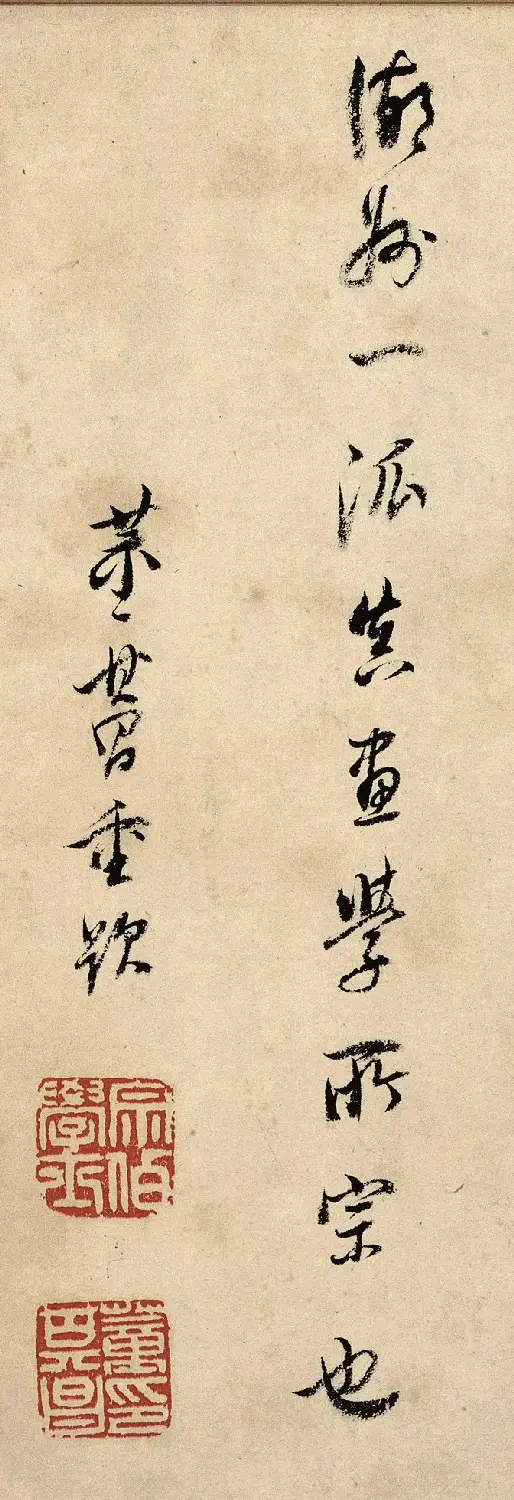 湖州一派真畫學所宗也
董其昌重題
宗伯學士
董其昌印